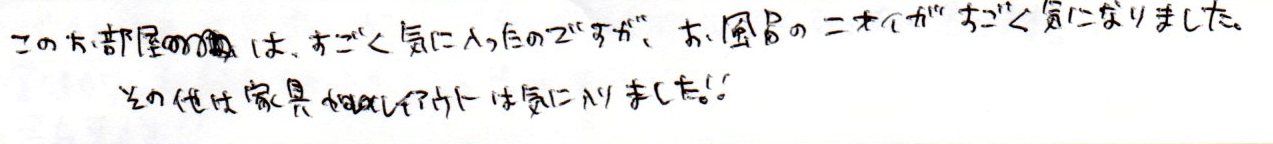 このお部屋は、すごく気に入ったのですが、お風呂のニオイがすごく気になりました。
その他は家具やレイアウトは気に入りました!!